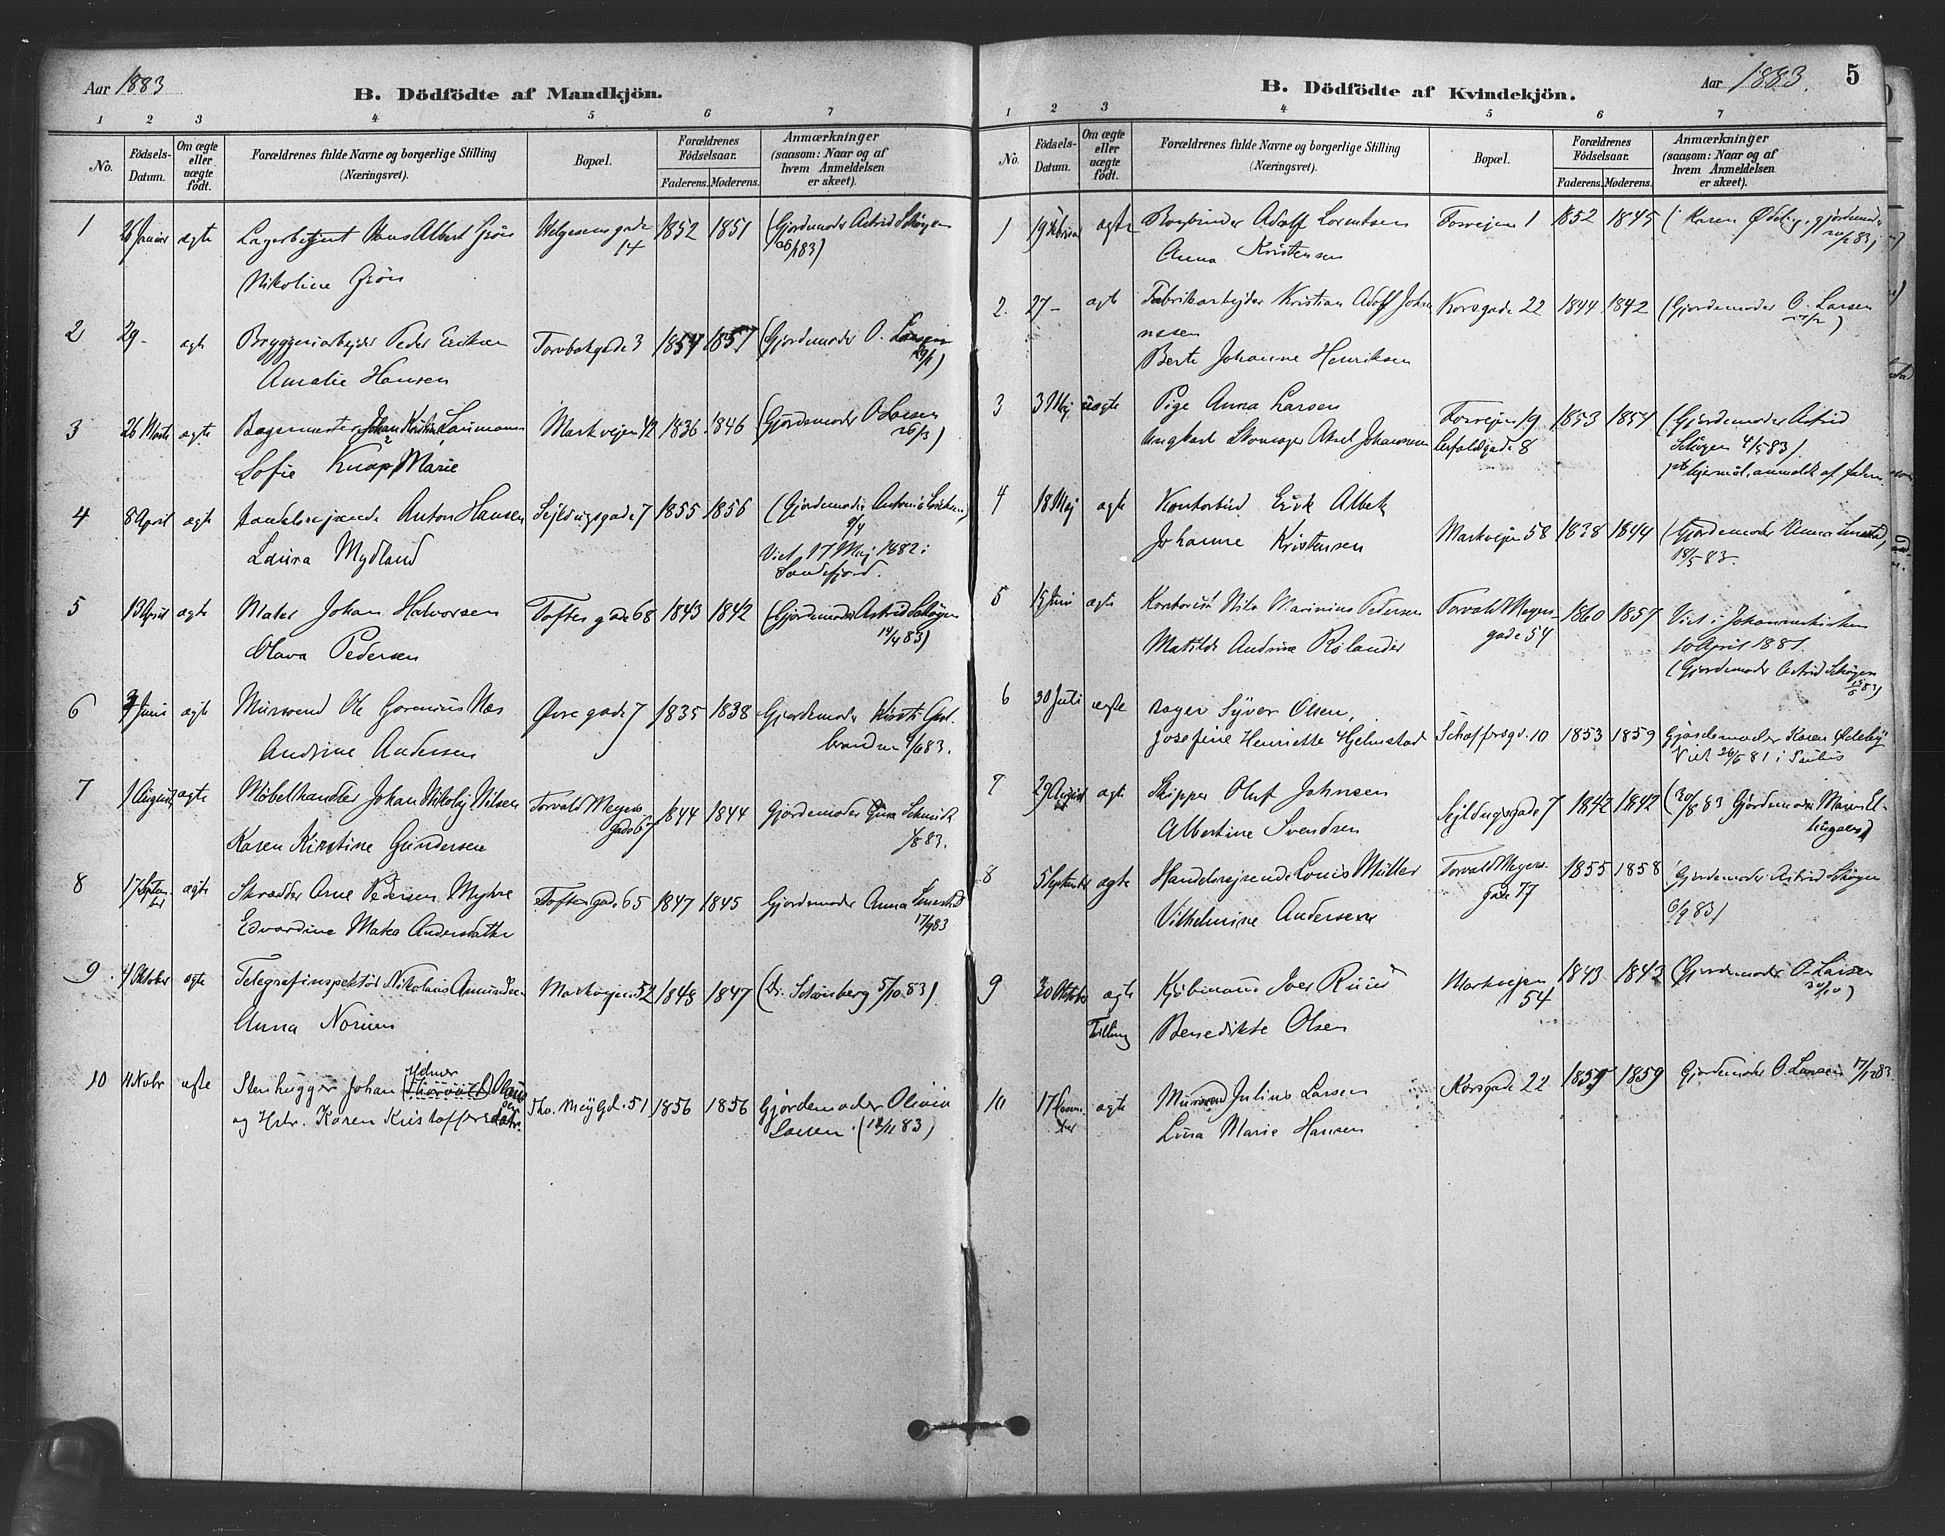 Aar 1883
B. Dödfödte af Mandkjön.
1 2 3 4 5 6 7
No.
Födsels-
Datum.
Om ægte
eller
uægte
født.
Forældrenes fulde Navne og borgerlige Stilling
(Næringsvei).
Bopæl.
Forældrenes
Födselsaar.
Faderens. Moderens.
Anmærkninger
(saasom: Naar og af
hvem Anmeldelsen
er skeet).
1 26 Januar ægte Lagerbetjent Hans Albert Grøn Helgesensgade 1852 1851 (Gjordemoder Astrid Skögen
14 26/1 83)
Nikoline Grøn
2 29 - ægte Bryggeriarbejder Peder Eriksen Torvbakgade 3 1854 1857 (Gjordemoder O. Larsen
29/1)
Amalie Hansen
3 26 Marts ægte Bagermester Johan Kristian Laumann Markvejen 12 1836 1846 (Gjordemoder O Larsen
26/3)
Sofie Knap, Marie
4 8 April ægte Handelsrejsende Anton Hansen Sejldugsgade 7 1855 1856 (Gjordemoder
9/4
Laura Mydland Viet 17 Maj 1882 i
Sandefjord.
5 13 April ægte Maler Johan Halvorsen Toftesgade 68 1843 1842 (Gjordemoder Astrid Skögen
14/4 83)
Olava Pedersen
6 Juni ægte Mursvend Ole Gorenius Næs Øvregade 7 1835 1838 Gjordemoder Kirsti Gul-
brandsen 4/6 83.
Andrine Andersen
7 1 August ægte Møbelhandler Johan Nikolaj Nilsen Torvald Meyers 1844 1844 Gjordemoder Schmidt
gade 67 1/8 83.
Karen Kirstine Gundersen
8 17 Septem- ægte Skrædder Arne Pedersen Myhre Toftesgade 65 1847 1845 Gjordemoder Anna
ber 17/9 83
Edvardine Matea Andersdatter
9 4 Oktober ægte Telegrafinspektør Nikolaus Amundsen Markvejen 52 1848 1847 (Dr. Schönberg 5/10 83).
Anna Norum
10 11 Nobr ægte Stenhugger Johan Hilmer
og Hstr. Karen Kristoffersdatr. Tho. Mey Gd. 51 1856 1856 Gjordemoder Olivia
Larsen. (12/11 83)
B. Dödfödte af Kvindekjön.
Aar 1883. 5
1 2 3 4 5 6 7
No.
Födsels-
Datum.
Om ægte
eller
uægte
födt.
Forældrenes fulde Navne og borgerlige Stilling
(Næringsvei).
Bopæl.
Forældrenes
Födselsaar.
Faderens. Moderens.
Anmærkninger
(saasom: Naar og af
hvem Anmeldelsen
er skeet).
1 19 Februar ægte Bogbinder Adolf Lorentsen Fosvejen 1 1852 1845 (Karen Ødeby, gjordemoder
20/2 83)
Anna Kristensen
2. 27 - ægte Fabrikarbejder Kristian Adolf Johan- Korsgade 22 1844 1842 (Gjordemoder O. Larsen
nesen 27/2)
Berte Johanne Henriksen
3 3 Maj uægte Pige Anna Larsen Fosvejen 19 1853 1854 (Gjordemoder Astrid
Ungkarl Skomager Aksel Johannsen gade 8 Skögen 4/5 83).
anmeldt af faderen.
4 18 Maj ægte Kontorbud Erik Albek
Johanne Kristensen Markvejen 58 1838 1844 (Gjordemoder Anna
18/5 83.
5 15 Juni ægte Kontorist Nils Marinius Pedersen Torvald Meyers- 1860 1857 Viet i Johanneskirken
gade 54 10 April 1881.
Matilde Andrine Rolander (Gjordemoder Astrid Skögen
15/6 83)
6 30 Juli ægte Syver Olsen,
Josefine Henriette Hjelmstad Schaffersgd. 10 1853 1859 Gjordemoder Karen Ødeby
Viet 26/6 81 i Paulus
7 29 August ægte Skipper Oluf Johnsen Sejldugsgade 7 1842 1842 (30/8 83 Gjordemoder Maren El-
Albertine Svendsen
8 5 September ægte Handelsrejsende Louis Müller Torvald Meyers- 1855 1858 (Gjordemoder Astrid Skögen
gade 77 6/9 83)
Vilhelmine Andersen
9 30 Oktober ægte Kjøbmand Iver Riiser Markvejen 1843 1843 (Gjordemoder O. Larsen
54 30/10)
Tvilling Benedikte Olsen
10 17 ægte Mursvend Julius Larsen Korsgade 22 1859 1859 Gjordemoder O. Larsen 17/12 83
Lina Marie Hansen